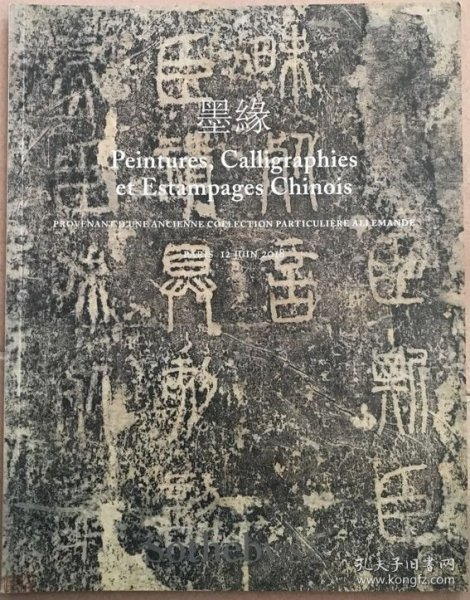 墨緣
Peintures, Calligraphies
et Estampages Chinois
PROVENANT D'UNE ANCIENNE COLLECTION PARTICULIÈRE ALLEMANDE
PARIS 12 JUIN
臣斯臣
昧死言
臣請具刻
Sotheby's
孔夫子旧书网
www.kongfz.com